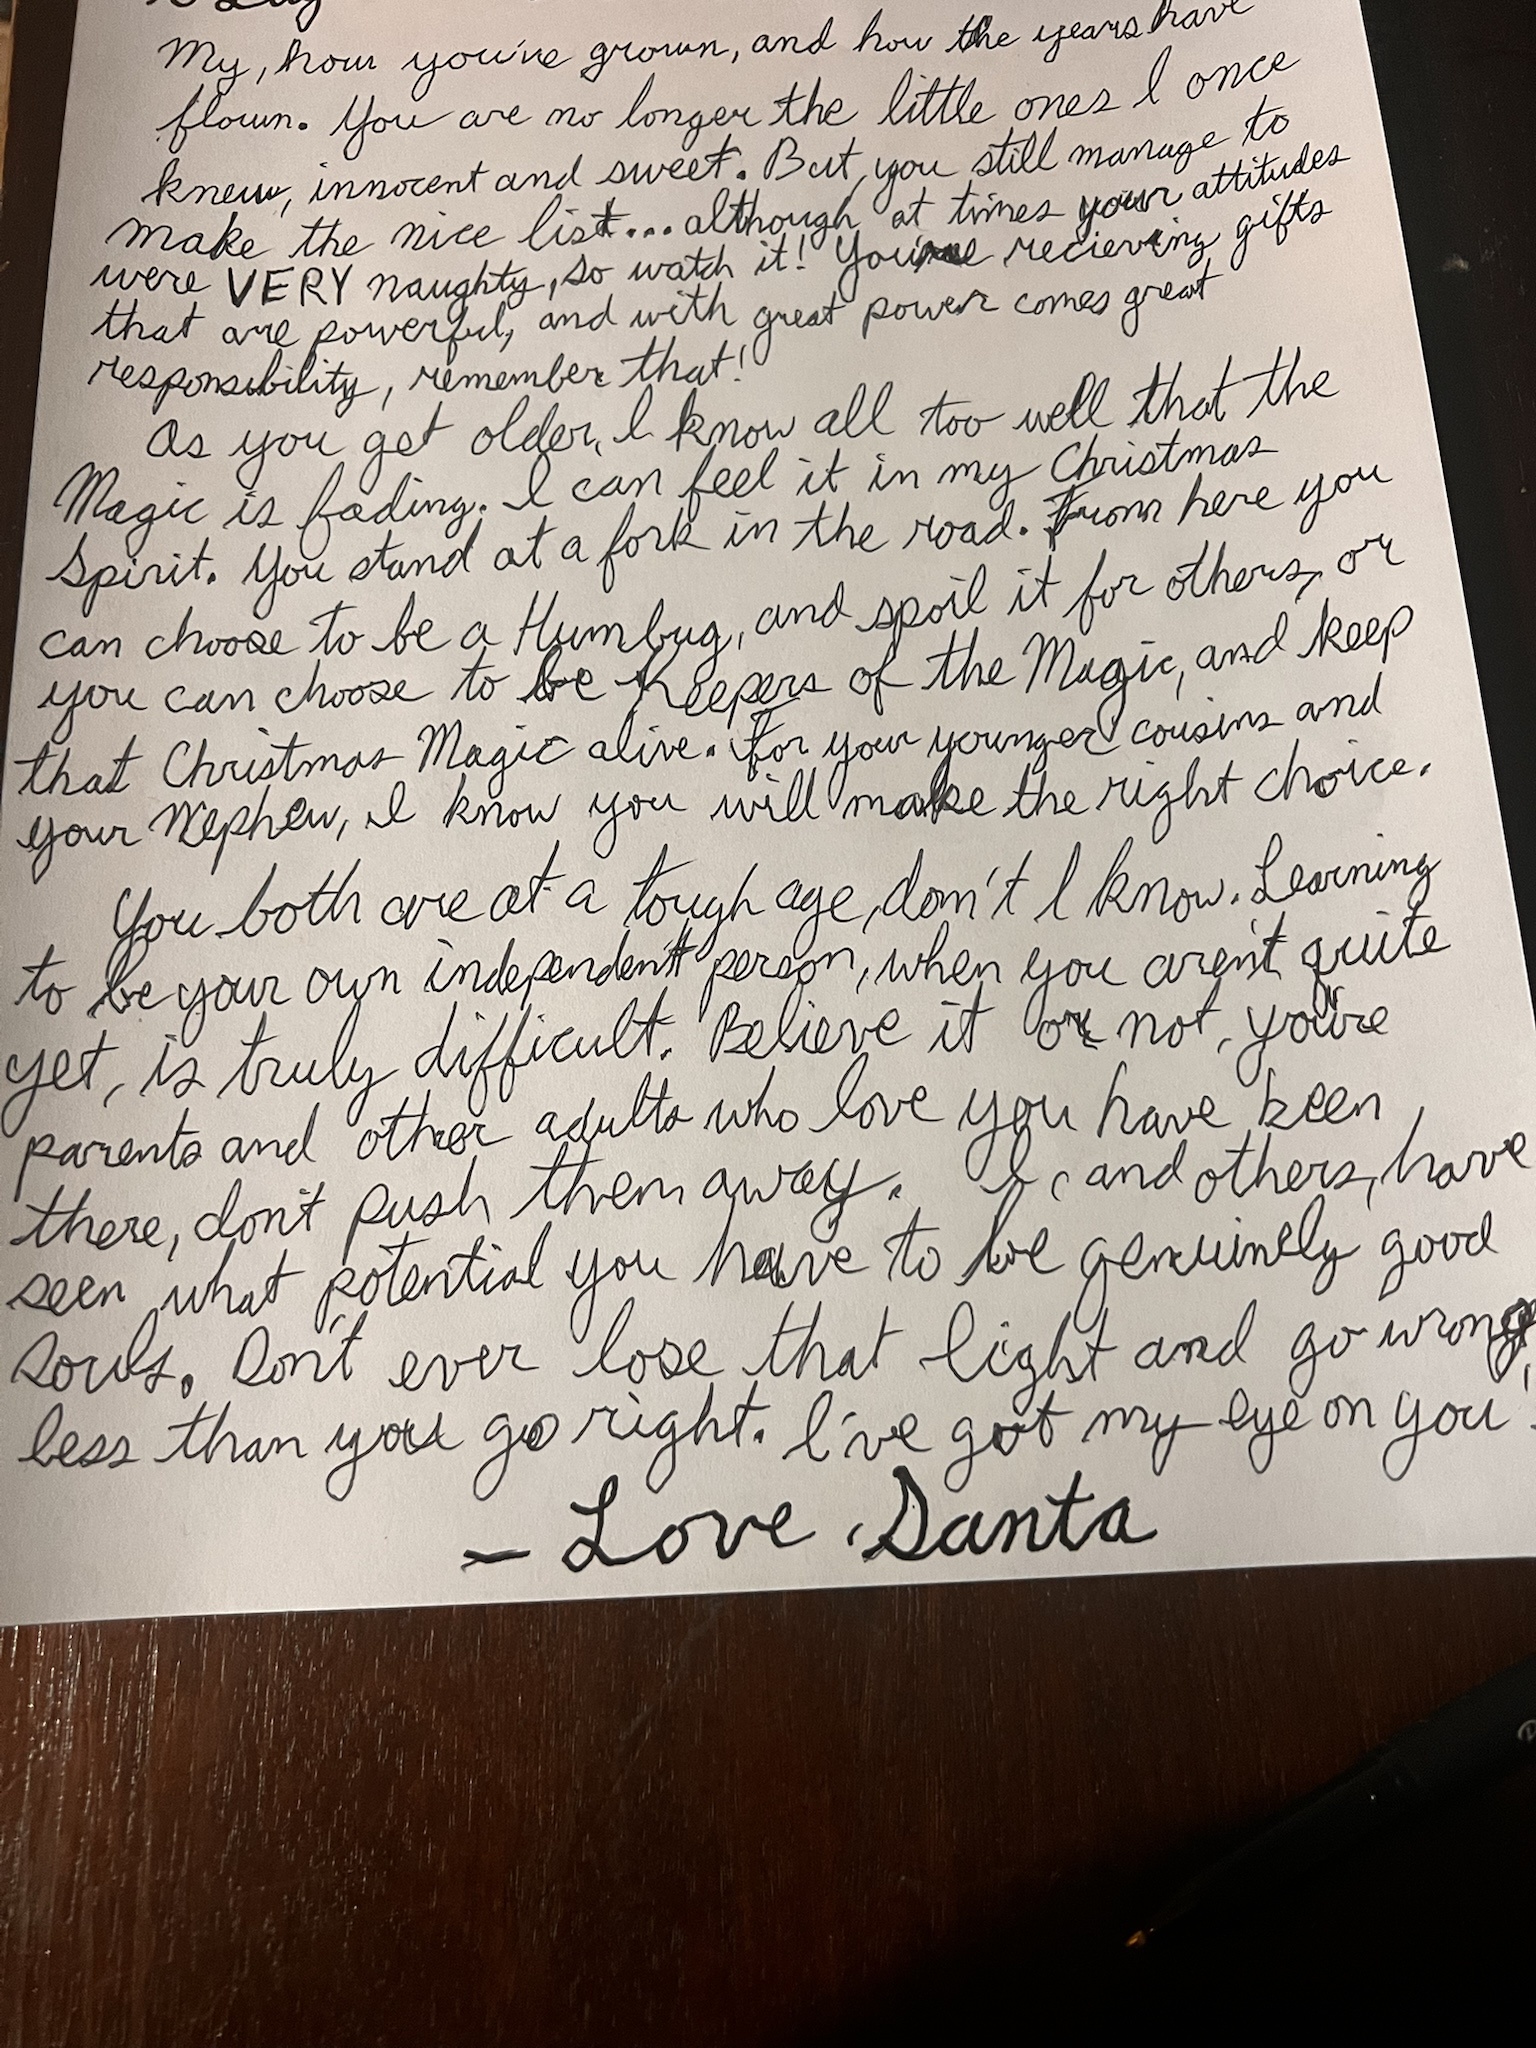 My, how you've grown, and how the years have
flown. You are no longer the little ones I once
knew, innocent and sweet. But, you still manage to
make the nice list... although at times your attitudes
were VERY naughty, so watch it! You're recieving gifts
that are powerful, and with great power comes great
responsibility, remember that!
As you get older, I know all too well that the
Magic is fading. I can feel it in my Christmas
Spirit. You stand at a fork in the road. From here you
can choose to be a Humbug, and spoil it for others, or
you can choose to be Keepers of the Magic, and keep
that Christmas Magic alive. For your younger cousins and
your Nephew, I know you will make the right choice.
You both are at a tough age, don't I know. Learning
to be your own independent person, when you aren't quite
yet, is truly difficult. Believe it or not, you're
parents and other adults who love you have been
there, don't push them away. I, and others, have
seen what potential you have to be genuinely good
souls. Don't ever lose that light and go wrong,
less than you go right. I've got my eye on you!
- Love, Santa